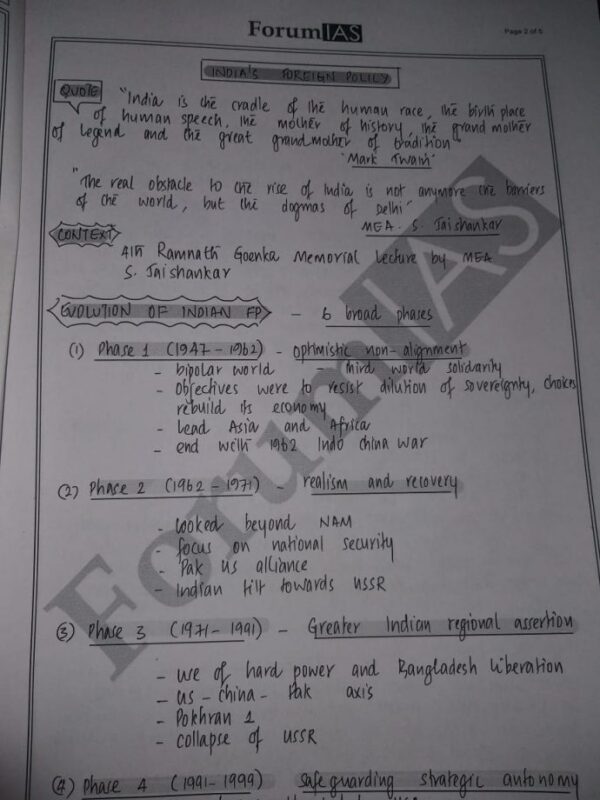 ForumIAS
Page 2 of 5
INDIA'S FOREIGN POLICY
QUOTE
"India is the cradle of the human race, the birth place
of human speech, the mother of history, the grand mother
of legend and the great grand mother of tradition"
'Mark Twain'
"The real obstacle to the rise of India is not anymore the barriers
of the world, but the dogmas of Delhi"
MEA. S. Jaishankar
CONTEXT
4th Ramnath Goenka Memorial Lecture by MEA
S. Jaishankar
EVOLUTION OF INDIAN FP - 6 broad phases
(1) Phase 1 (1947 - 1962) - optimistic non-alignment
- bipolar world - third world solidarity
- objectives were to resist dilution of sovereignty, choices
rebuild its economy
- lead Asia and Africa
- end with 1962 Indo china war
(2) Phase 2 (1962 - 1971) - realism and recovery
- looked beyond NAM
- focus on national security
- Pak US alliance
- Indian tilt towards USSR
(3) Phase 3 (1971 - 1991) - Greater Indian regional assertion
- use of hard power and Bangladesh liberation
- US - china - Pak axis
- Pokhran 1
- collapse of USSR
(4) Phase 4 (1991 - 1999) safeguarding strategic autonomy
ForumIAS